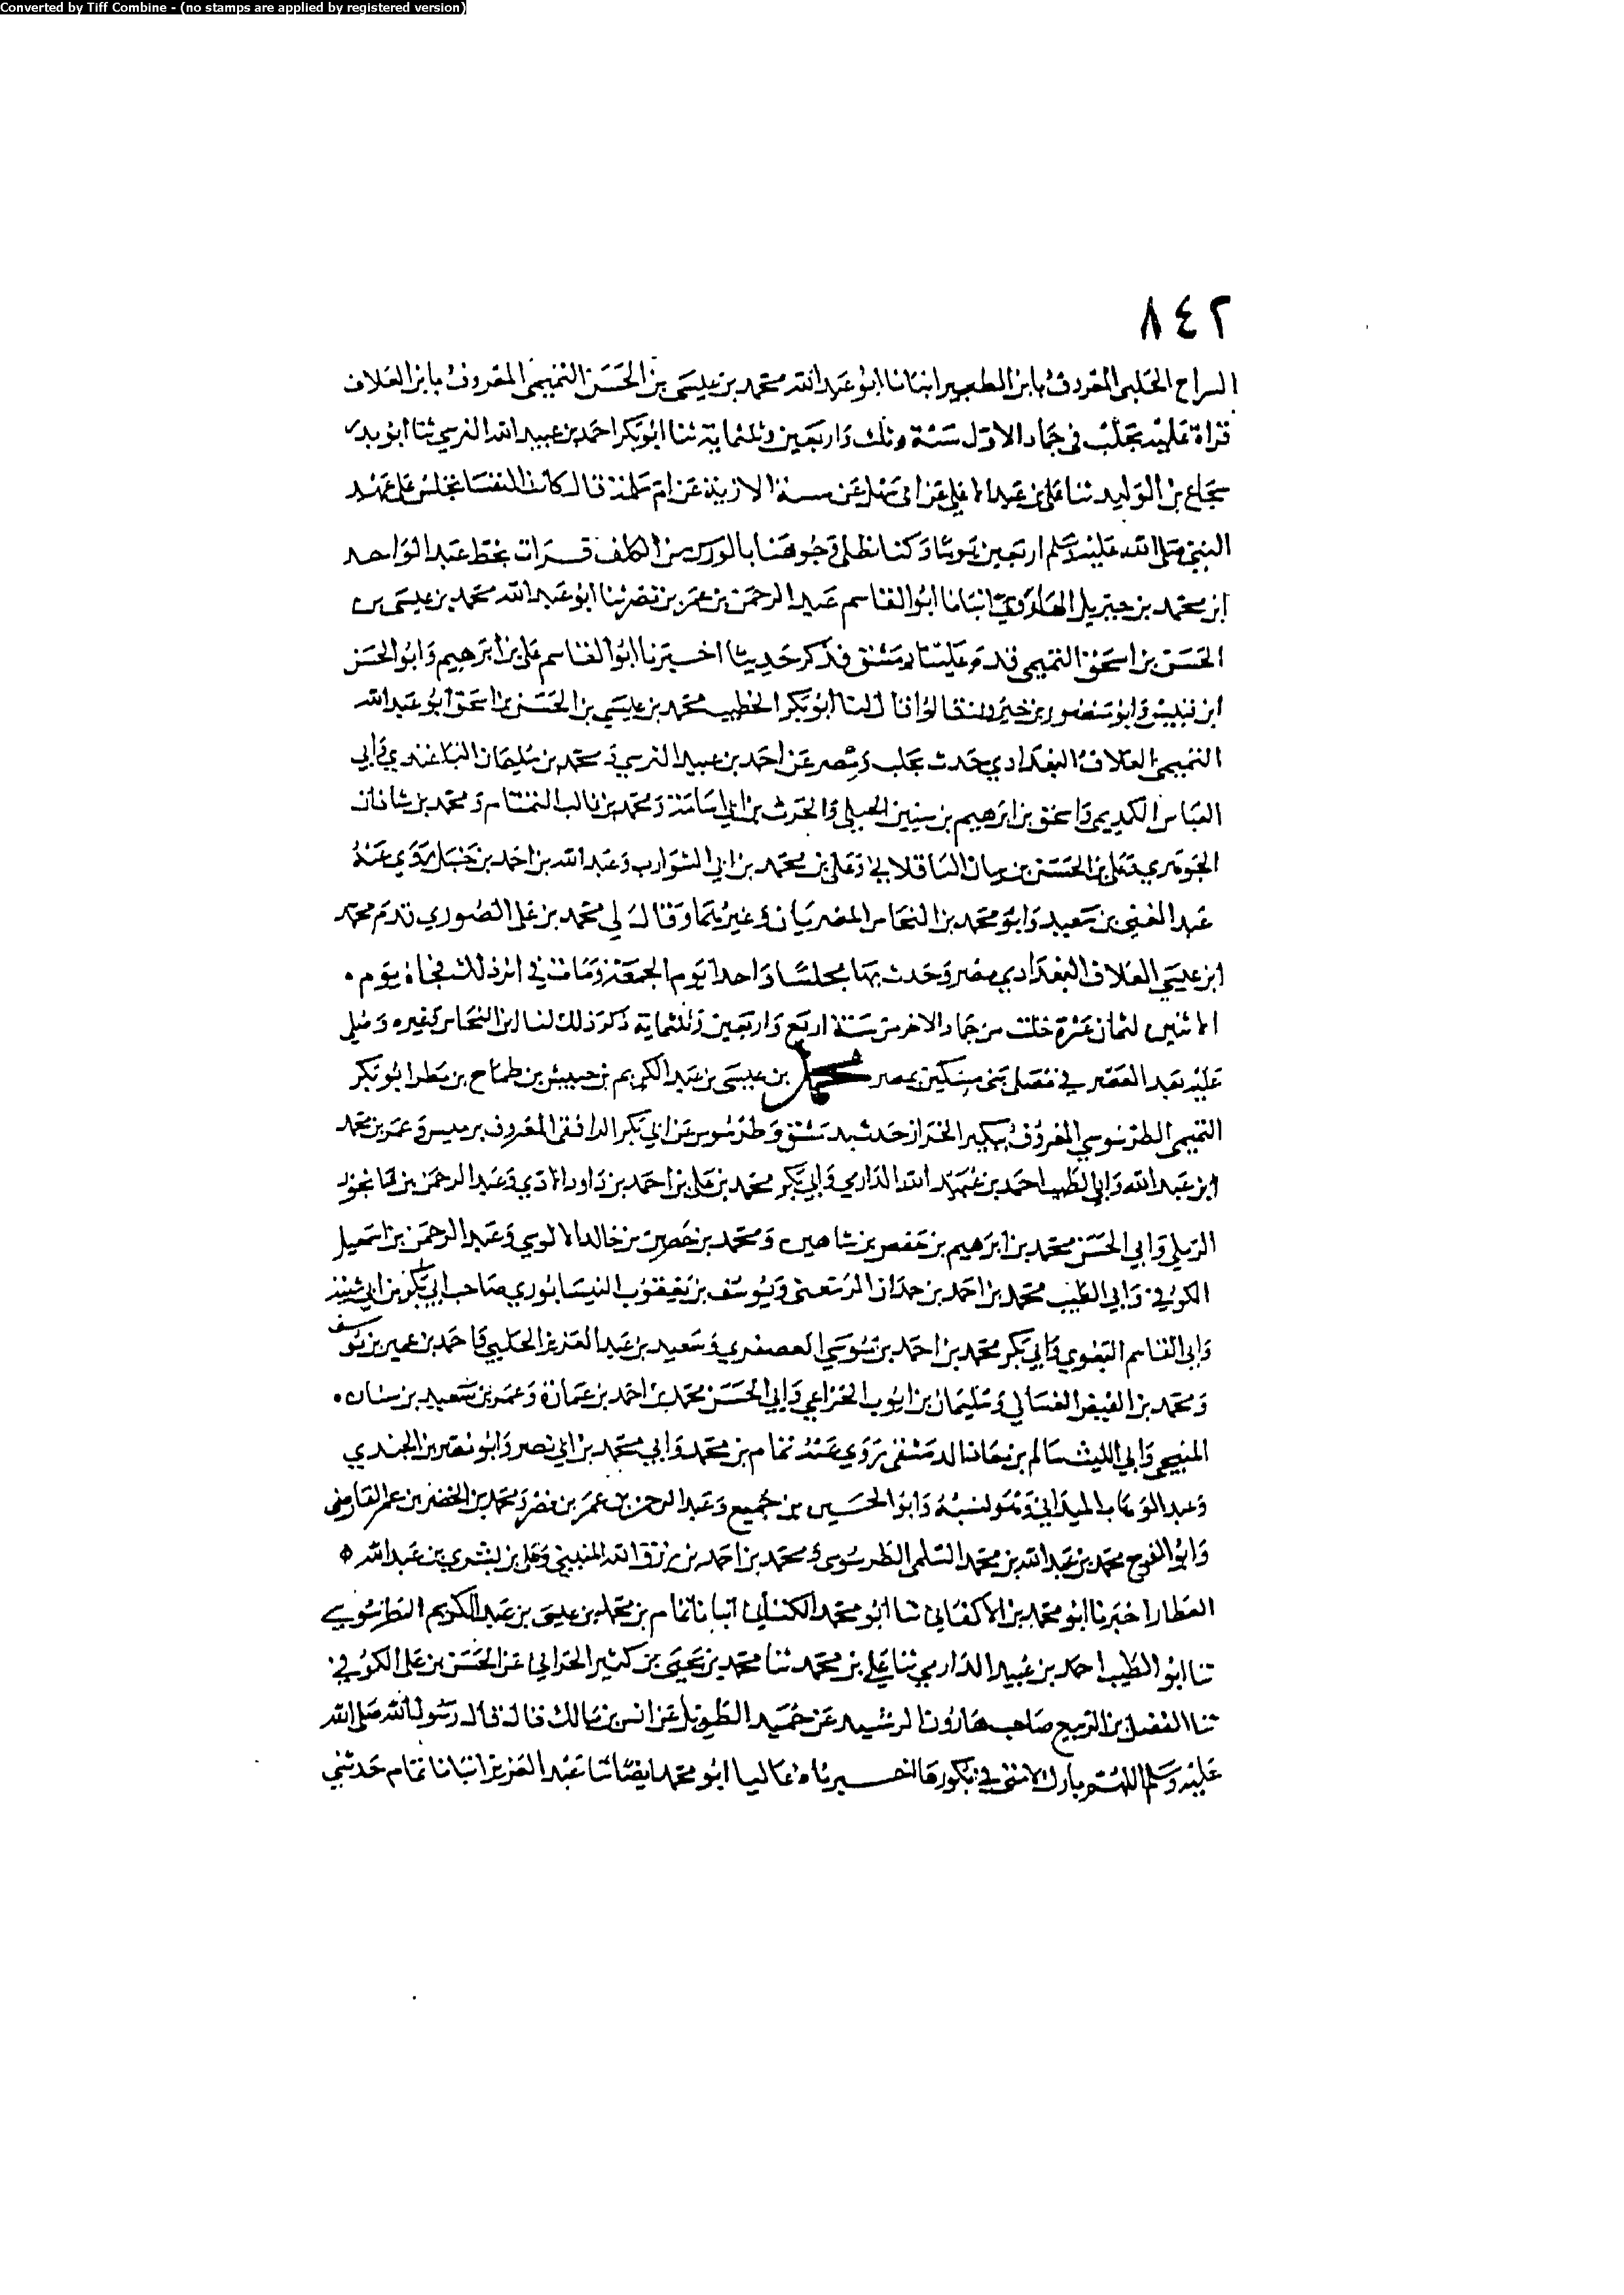 Converted by Tiff Combine - (no stamps are applied by registered version)
٨٤٢
السراج الحلبي المعروف بابن الطيير انبانا ابو عبد الله محمد بن عيسى بن الحسن التميمي المعروف بابن العلاف
قراة عليه بحلب في جماد الاول سنة وثلث واربعين وثلثماية ثنا ابو بكر احمد بن عبيد الله النرسي ثنا ابو بدر
شجاع بن الوليد ثنا علي بن عبد الاعلى عن ابي سهل عن مسة الازدية عن ام سلمة قال كانت النفسا تجلس على عهد
النبي صلى الله عليه وسلم اربعين يوما وكنا نطلي وجوهنا بالورس من الكلف قرات بخط عبد الواحد
ابن محمد بن جبريل الهروي انبانا ابو القاسم عبد الرحمن بن عمر بن نصر ثنا ابو عبد الله محمد بن عيسى بن
الحسن بن اسحق التميمي قدم علينا دمشق فذكر حديثا اخبرنا ابو القاسم علي بن ابرهيم وابو الحسن
ابن قبيس وابو منصور بن خيرون قالوا قال لنا ابو بكر الخطيب محمد بن عيسى بن الحسن بن اسحق ابو عبد الله
التميمي العلاف البغدادي حدث بحلب ومصر عن احمد بن عبيد النرسي ومحمد بن سليمان الباغندي وابي
العباس الكديمي واسحق بن ابرهيم بن سنين الختلي والحرث بن ابي اسامة ومحمد بن غالب التمتام ومحمد بن شاذان
الجوهري وعلي بن الحسن بن بيان الباقلاني وعلي بن محمد بن ابي الشوارب وعبد الله بن احمد بن حنبل روى عنه
عبد الغني بن سعيد وابو محمد بن النحاس المصريان وغيرهما وقال لي محمد بن علي الصوري قدم محمد
ابن عيسى العلاف البغدادي مصر وحدث بها مجلسا واحدا يوم الجمعة ومات في اثر ذلك فجاة يوم
الاثنين لثمان عشرة خلت من جماد الاخر من سنة اربع واربعين وثلثماية ذكر ذلك لنا ابن النحاس وغيره وصلي
عليه بعد العصر في مصلى بني مسكين بمصر محمد بن عيسى بن عبد الكريم بن حبيش بن طماح بن مطر ابو بكر
التميمي الطرسوسي المعروف ببكير الخراز حدث بدمشق وطرسوس عن ابي بكر الرافقي المعروف برميس وعمر بن محمد
ابن عبد الله وابي الطيب احمد بن عبيد الله الدارمي وابي بكر محمد بن علي بن احمد بن داود الاذني وعبد الرحمن بن
الرملي وابي الحسن محمد بن ابرهيم بن حفص بن شاهين ومحمد بن حصن بن خالد الالوسي وعبد الرحمن بن اسمعيل
الكوفي وابي الطيب محمد بن احمد بن حمدان الرسعني ويوسف بن يعقوب النيسابوري صاحب ابي بكر بن ابي شيبة
وابي القاسم البغوي وابي بكر محمد بن احمد بن موسى العصفري وسعيد بن عبد العزيز الحلبي واحمد بن عمير بن يوسف
ومحمد بن الفيض الغساني وسليمان بن ايوب الخزاعي وابي الحسن محمد بن احمد بن عمارة وعمر بن سعيد بن سنان
المنبجي وابي الليث سالم بن معاذ الدمشقي روى عنه تمام بن محمد وابي محمد بن ابي نصر وابو نصر بن الجندي
وعبد الوهاب الميداني وهو لنسبه وابو الحسين بن جميع وعبد الرحمن بن عمر بن نصر ومحمد بن الخضر بن عمر الفارضي
وابو الفرج محمد بن عبد الله بن محمد السلمي الطرسوسي ومحمد بن احمد بن رزق الله المنيني وعلي بن بشرى بن عبد الله
العطار اخبرنا ابو محمد بن الاكفاني ثنا ابو محمد الكتاني انبانا تمام بن محمد بن عيسى بن عبد الكريم الطرسوسي
ثنا ابو الطيب احمد بن عبيد الدارمي ثنا علي بن محمد ثنا محمد بن يحيى بن كثير الحراني عن الحسن بن علي الكوفي
ثنا الفضل بن الربيع صاحب هارون الرشيد عن حميد الطويل عن انس بن مالك قال قال رسول الله صلى الله
عليه وسلم اللهم بارك لامتي في بكورها اخبرناه عاليا ابو محمد ايضا ثنا عبد العزيز انبانا تمام حدثني